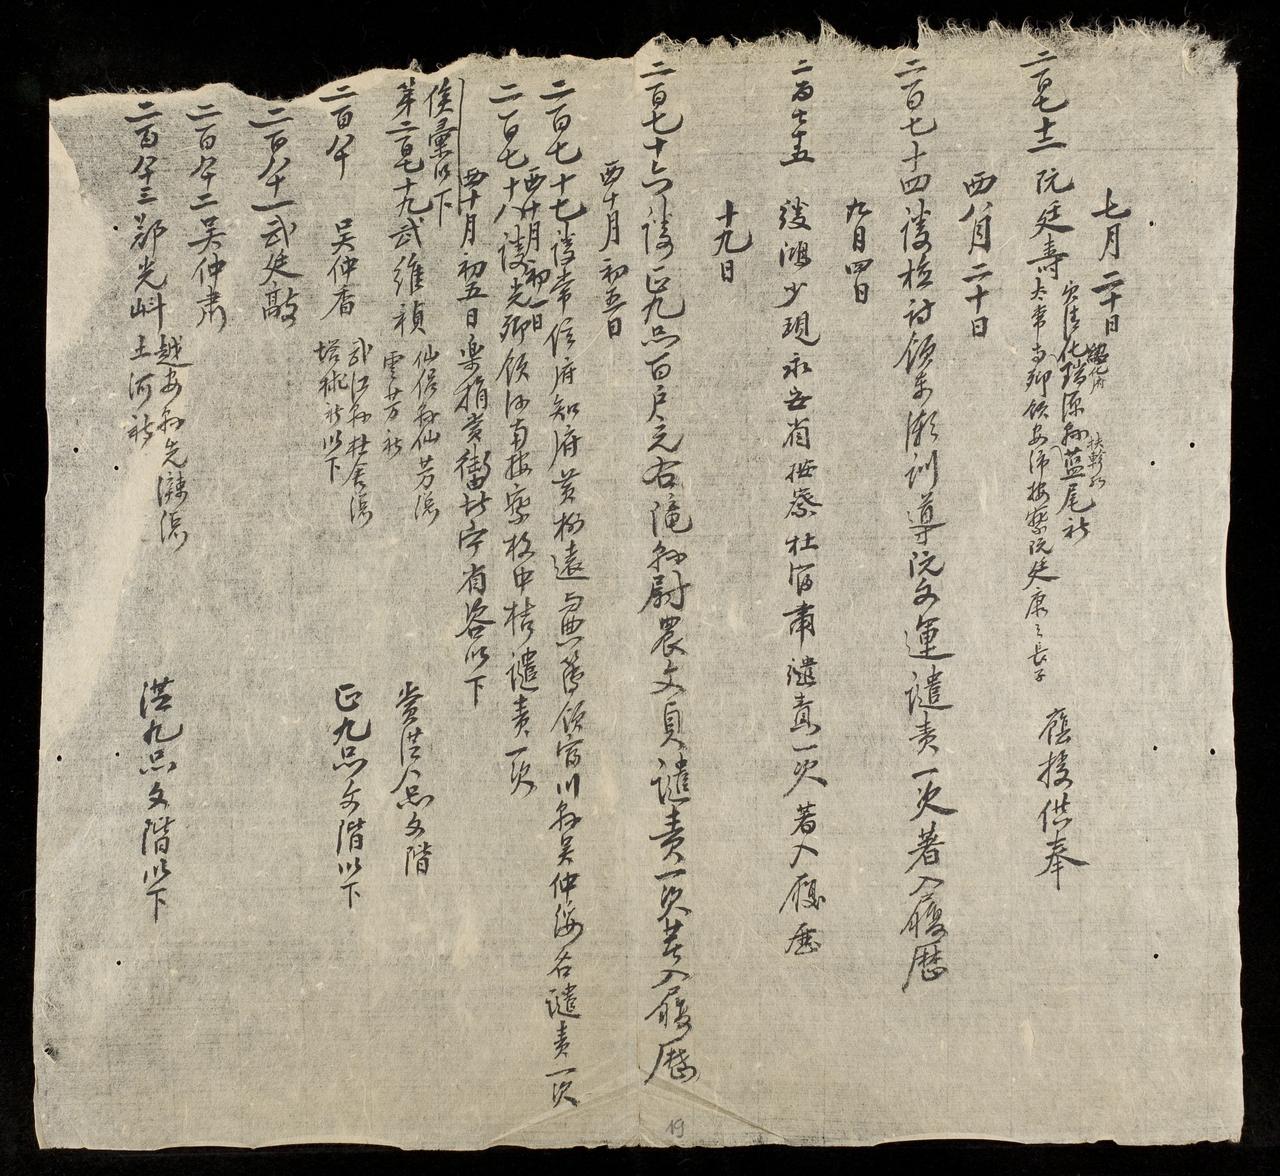 七月二十日
二百七十三 阮廷壽 太常寺卿領安沛按察阮廷康之長子 應授供奉
清化瑞源縣藍尾社
紹化府
扶軫
酉八月二十日
二百七十四 諉檢討領東潮訓導阮文運譴責一次著入履歷
九月四日
二百七十五 諉鴻少現永安省按察杜 肅譴責一次著入履歷
十九日
二百七十六 諉正九品百戶充右隴縣尉農文貞譴責一次著入履歷
酉十月初五日
二百七十七 諉常信府知府黃 遠與 領富川縣吳仲 各譴責一次
酉十月初一日
二百七十八 諉光卿領河南按察枚中桔譴責一次
酉十月初五日樂捐賞銜北寧省咨以下
侯彙以下
第二百七十九 武維禎 仙侶縣仙芳總雲芳社 賞從八品文階
二百八十 吳仲香 武江縣杜舍總 社以下 正九品文階以下
二百八十一 武廷敲
二百八十二 吳仲肅
二百八十三 鄧光 越安縣先 總土河社 從九品文階以下
19